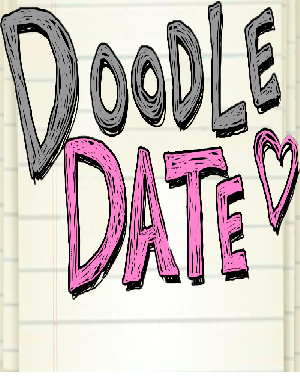 DOODLE
DATE